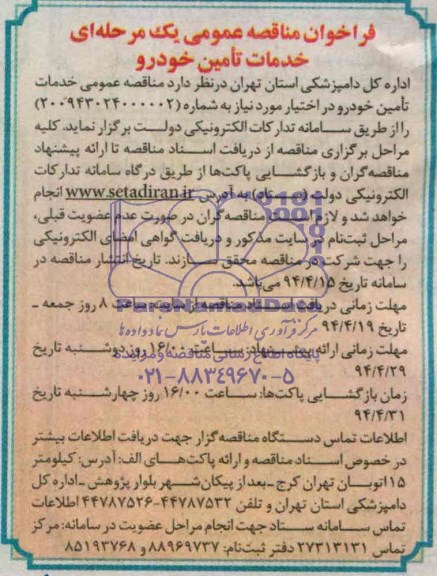 فراخوان مناقصه عمومی یک مرحله‌ای
خدمات تأمین خودرو
اداره کل دامپزشکی استان تهران درنظر دارد مناقصه عمومی خدمات
تأمین خودرو در اختیار مورد نیاز به شماره (۲۰۰۹۴۳۰۲۴۰۰۰۰۰۲)
را از طریق سـامانه تدارکات الکترونیکی دولـت برگزار نماید. کلیه
مراحل برگزاری مناقصه از دریافت اسـناد مناقصه تا ارائه پیشنهاد
مناقصه‌گران و بازگشـایی پاکت‌ها از طریق درگاه سامانه تدارکات
الکترونیکی دولت (سـتاد) به آدرس www.setadiran.ir انجام
خواهد شد و لازم است مناقصه‌گران در صورت عدم عضویت قبلی،
مراحل ثبت‌نام در سایت مذکور و دریافت گواهی امضای الکترونیکی
را جهت شرکت در مناقصه محقق سـازند. تاریخ انتشار مناقصه در
سامانه تاریخ ۹۴/۴/۱۵ می‌باشد.
ParsNamadData
مهلت زمانی دریافت اسـناد مناقصه از سایت: ساعت ۸ روز جمعه ـ
تاریخ ۹۴/۴/۱۹
مرکز فرآوری اطلاعات پارس نماد داده‌ها
مهلت زمانی ارائه پیشـنهاد: سـاعت ۱۶/۰۰ روز دوشـنبه تاریخ
پایگاه اطلاع رسانی مناقصه و مزایده
۹۴/۴/۲۹
۰۲۱-۸۸۳۴۹۶۷۰-۵
زمان بازگشـایی پاکت‌ها: سـاعت ۱۶/۰۰ روز چهارشـنبه تاریخ
۹۴/۴/۳۱
اطلاعات تماس دسـتگاه مناقصه‌گزار جهت دریافت اطلاعات بیشتر
در خصوص اسـناد مناقصه و ارائه پاکت‌هـای الف: آدرس: کیلومتر
۱۵ اتوبـان تهران کرج ـ بعد از پیکان‌شـهر بلوار پژوهش ـ اداره کل
دامپزشکی استان تهران و تلفن ۴۴۷۸۷۵۳۲-۴۴۷۸۷۵۲۶ اطلاعات
تماس سـامانه سـتاد جهت انجام مراحل عضویت در سامانه: مرکز
تماس ۲۷۳۱۳۱۳۱ دفتر ثبت‌نام: ۸۸۹۶۹۷۳۷ و ۸۵۱۹۳۷۶۸